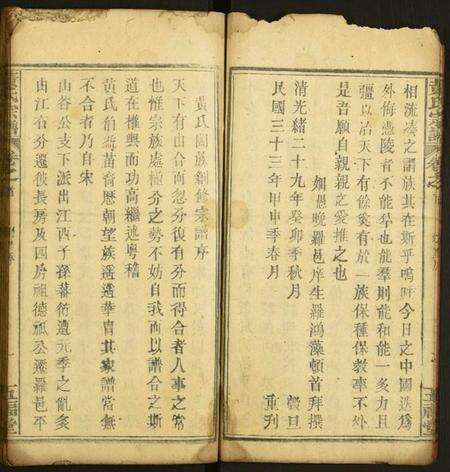 相流湊之謂族其在斯乎嗚呼今日之中國迭為
外侮憑陵者不能羣也能羣則能和能一炙力且
疆以治天下有餘奚有於一族保種保教率不外
是吾願自親親之愛推之也
姻愚晚羅邑庠生羅鴻藻頓首拜撰
清光緒二十九年癸卯季秋月 穀旦
民國三十三年甲申季春月 重刋
黃氏宗譜
五福堂
黃氏闔族創修宗譜序
天下有由合而忽分復有分而得合者人事之常
也惟宗族處極分之勢不妨自我而以譜合之斯
道在惟興而功高繼述粵稽
黃氏伯益苗裔歷朝望族遥遥華冑其家譜當無
不合者乃自宋
山谷公支下派出江西子孫蕃衍遭元季之亂爰
由江右分遷後長房及四房祖德祇公遷羅邑平